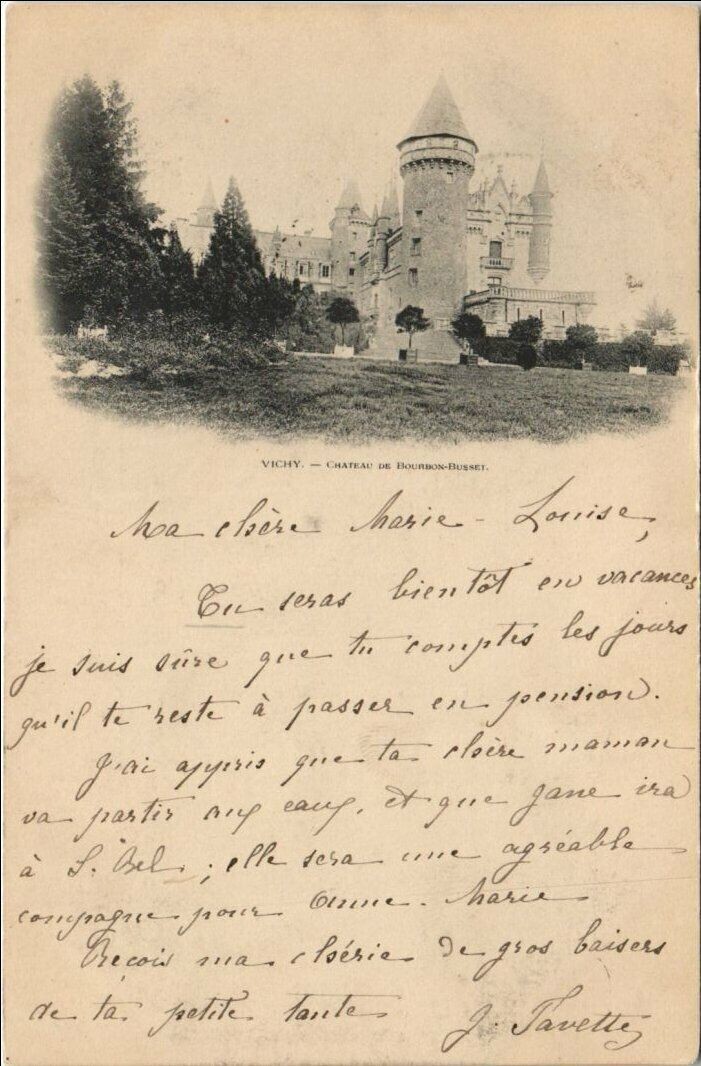 VICHY. — CHATEAU DE BOURBON-BUSSET.
Ma chère Marie-Louise,
Tu seras bientôt en vacances
je suis sûre que tu comptes les jours
qu'il te reste à passer en pension.
J'ai appris que ta chère maman
va partir aux eaux, et que Jane ira
à S. Bel ; elle sera une agréable
compagne pour Anne-Marie
Reçois ma chérie de gros baisers
de ta petite tante J.